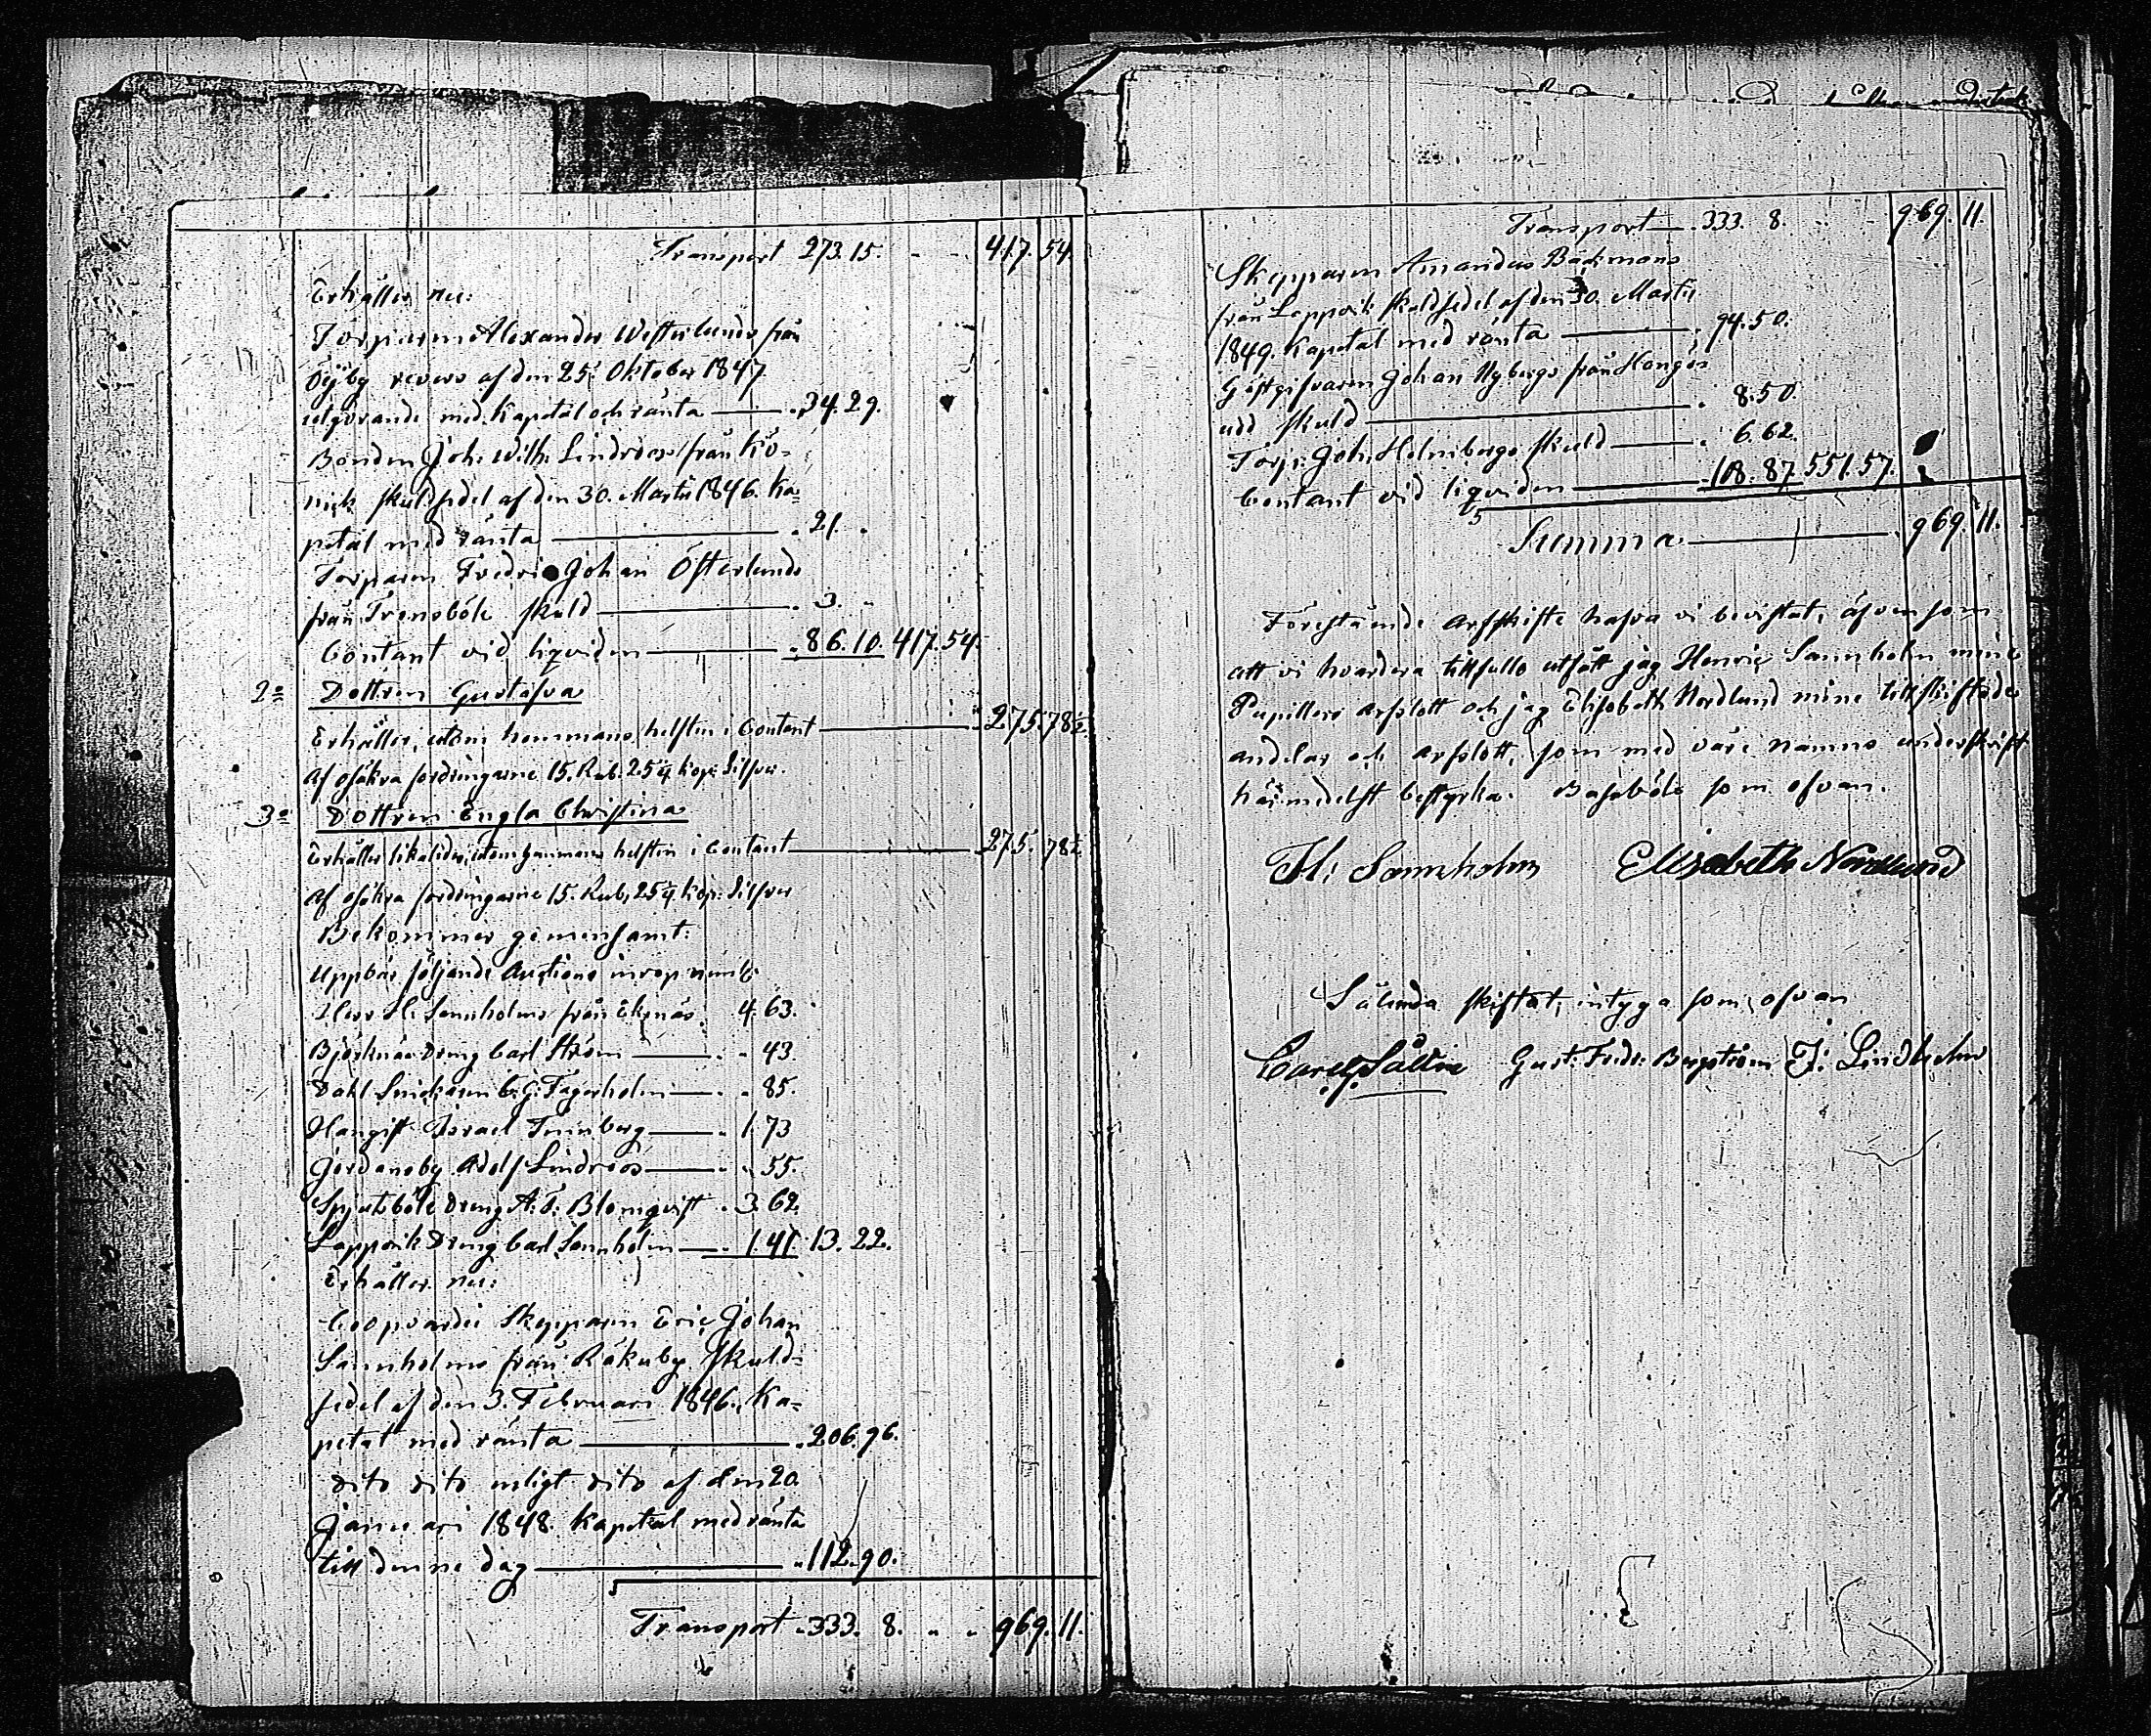 Transport 273.15. " " 417.54.
Erhåller nu:
Torparen Alexander Westerlunds från
Öijby revers af den 25: Oktober 1847
utgörande med Kapital och ränta — " 34.29.
Bonden Joh: Wilh: Lindroos från Kö-
nick skuldsedel af den 30. Martii 1846. Ka-
pital med ränta — " 21. "
Torparen Fredric Johan Österlunds
från Trensböle skuld — " 3. "
Contant vid liqviden — " 86.10. 417.54.
2o Dottren Gustafva
Erhåller, utom hemmans helften i Contant — " 275. 78½.
Af osäkra fordringarne 15. Rub. 25¼ Kop: Silfver.
3o Dottren Engla Christina
Erhåller likaledes, utom hemmans helften i Contant — " 275. 78½.
Af osäkra fordringarne 15. Rub. 25¼ Kop: Silfver
Bekommer gemensamt:
Uppbär följande Auctions inrop neml:
Herr H: Sannholms från Ekenäs. 4. 63.
Björknäs Dreng Carl Ström — " " 43
Dahl Smickaren C: G: Fagerholm — " " 85.
Hangist Israel Tunnberg — " 1. 73
Jordansby Adolf Lindroos — " " 55.
Spjutsböle Dreng A: F: Blomqvist " 3. 62.
Lappvik Dreng Carl Sannholm — " 1.41 13. 22.
Erhåller nu:
Coopvardie Skepparen Eric Johan
Sannholms från Råkuby skuld-
sedel af den 3. Februari 1846. Ka-
pital med ränta — " 206.96.
dito dito enligt dito af den 20.
Januari 1848. Kapital med ränta
till denne dag — " 112.90.
Transport " 333. 8. " " 969. 11.
Transport — " 333. 8. " " 969. 11.
Skepparen Amandus Bäckmans
från Lappvik skuldsedel af den 30. Martii
1849. Kapital med ränta — " 94.50.
Gästgifvaren Johan Nybergs från Hangö-
udd skuld — " 8.50.
Torp: Joh: Holmbergs skuld — " 6.62.
Contant vid liqviden — " 108. 87. 551. 57.
Summa — " 969. 11.
Förestående arfskifte hafva vi bevistat, äfvensom
att vi hvardera tillfullo utfått jag Henric Sannholm mine
Pupillers arfslott och jag Elisabeth Nordlund mine tillskiftade
andelar och arfslott, som med våre namns underskrift
härmedelst bestyrka. Basaböle som ofvan.
H: Sannholm Elisabeth Nordlund
Sålunda skiftat, intyga som ofvan
Carl G. Gust: Fredr: Bergström J: Lindholm